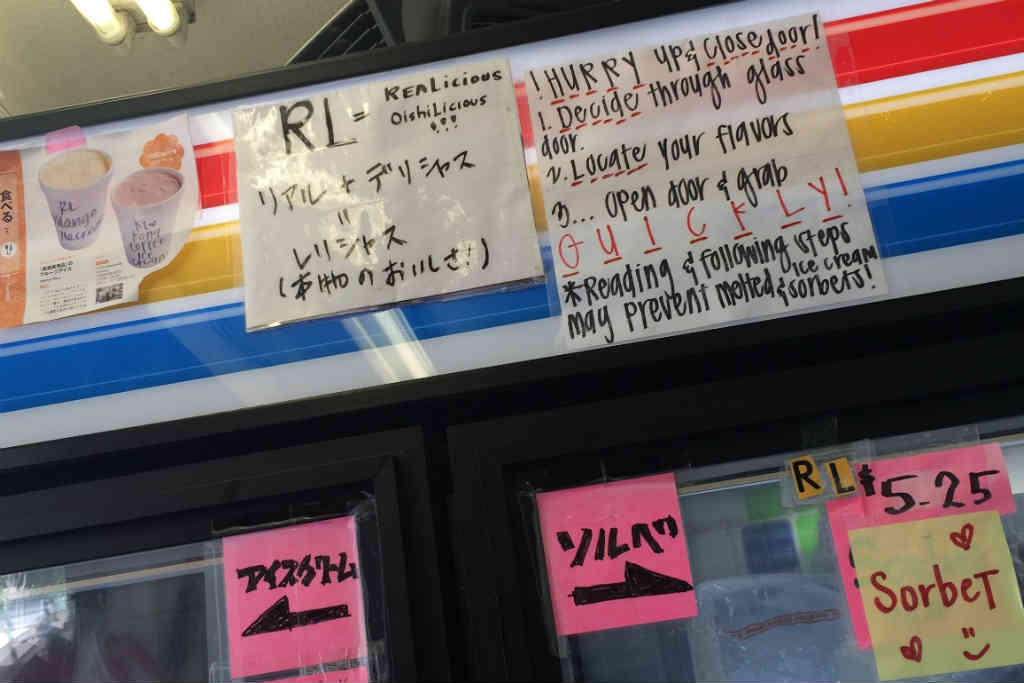 RL =
REALicious
OishiLicious
!!!
リアル + デリシャス
"
レリシャス
(本物のおいしさ!)
! HURRY up & Close door!
1. Decide through glass
door.
2. Locate your flavors
3... Open door & grab
QUICKLY!
*Reading & following steps
may prevent melted ice cream
& sorbets!
食べる
RL
Mango
アイスクリーム
ソルベ
RL $5.25
Sorbet